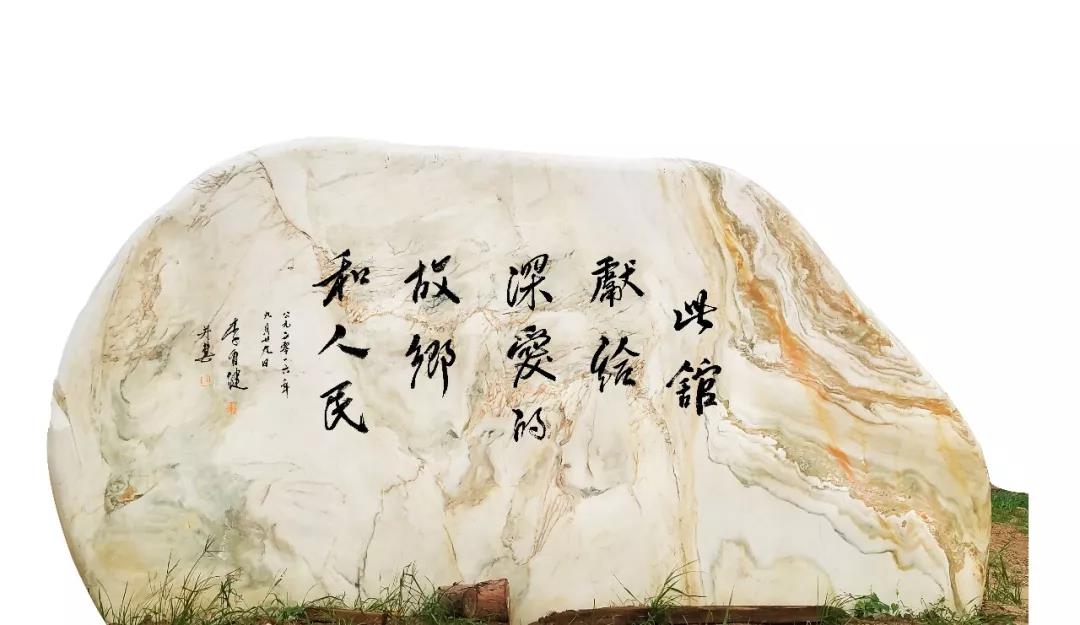 此舘
獻给
深愛的
故鄉
和人民
公元二零一六年
九月廿九日
李自健
丹慧